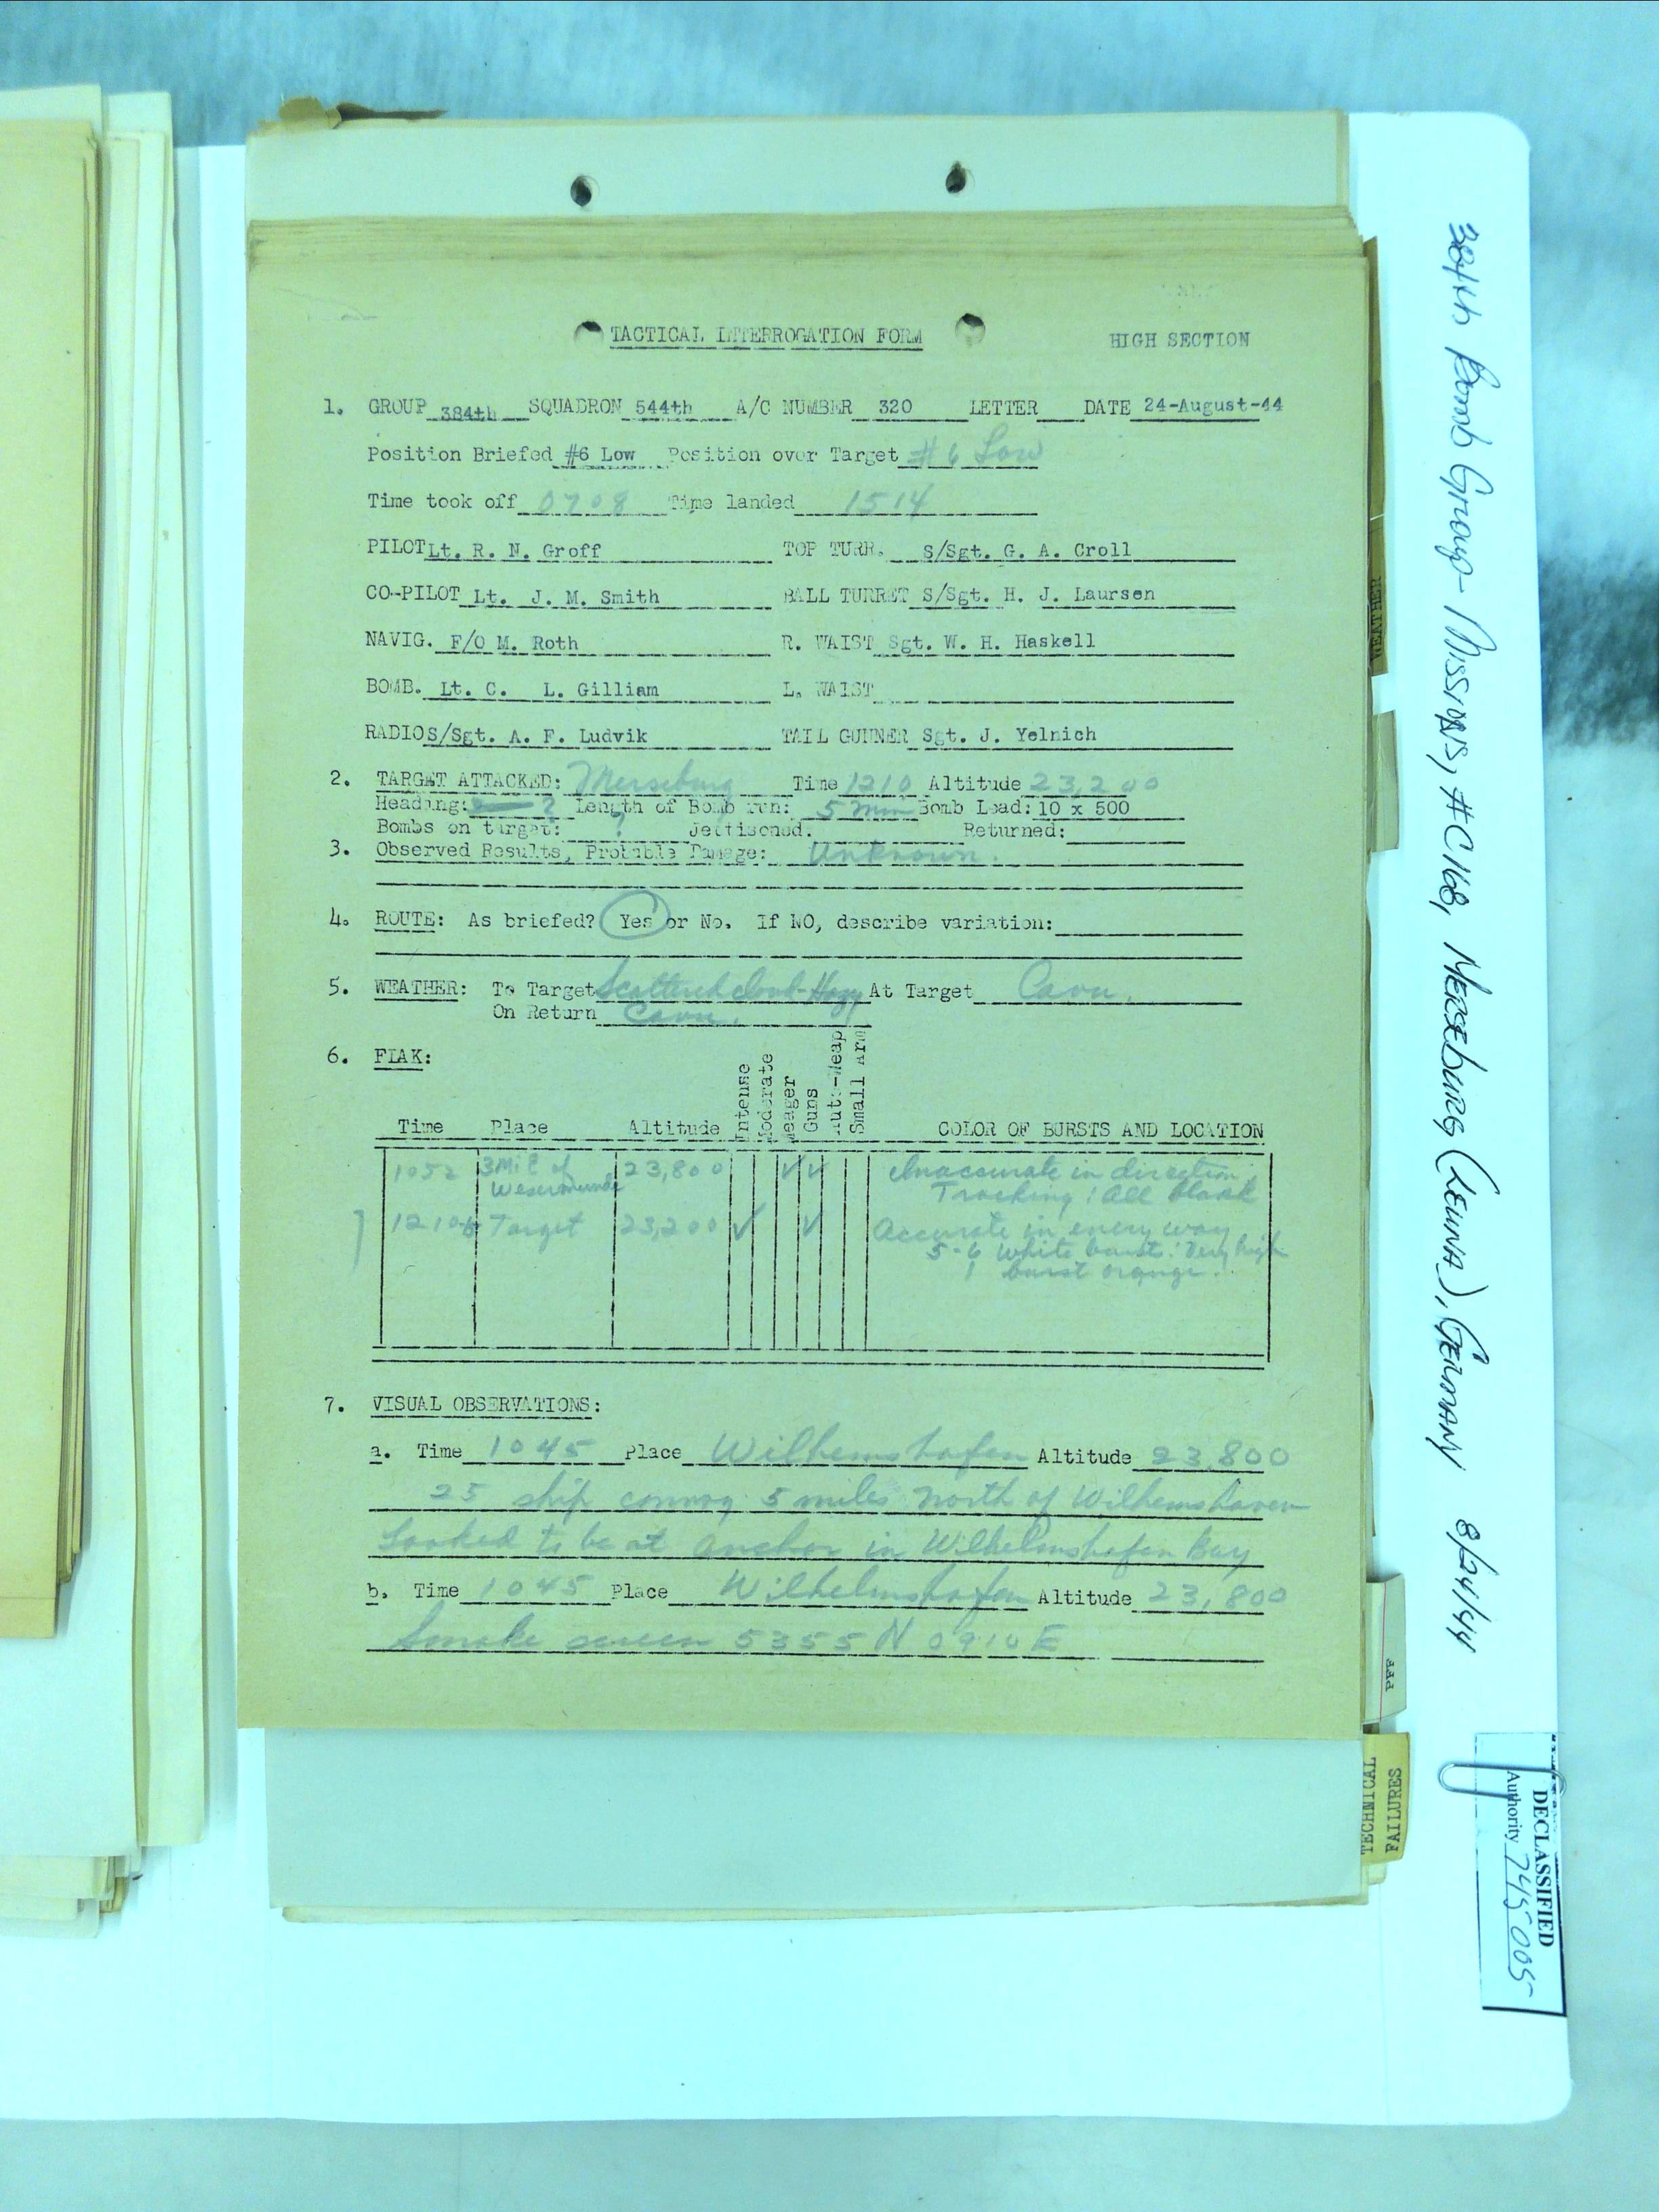 TACTICAL INTERROGATION FORM HIGH SECTION
1. GROUP 384th SQUADRON 544th A/C NUMBER 320 LETTER DATE 24-August-44
Position Briefed #6 Low Position over Target #6 Low
Time took off 0708 Time landed 1514
PILOT Lt. R. N. Groff TOP TURR. S/Sgt. G. A. Croll
CO-PILOT Lt. J. M. Smith BALL TURRET S/Sgt. H. J. Laursen
NAVIG. F/O M. Roth R. WAIST Sgt. W. H. Haskell
BOMB. Lt. C. L. Gilliam L. WAIST
RADIO S/Sgt. A. F. Ludvik TAIL GUNNER Sgt. J. Yelnich
2. TARGET ATTACKED: Merseburg Time 1210 Altitude 23,200
Heading: ? Length of Bomb run: 5 min Bomb Load: 10 x 500
Bombs on target: ? Jettisoned. Returned:
3. Observed Results, Probable Damage: Unknown.
4. ROUTE: As briefed? Yes or No. If NO, describe variation:
5. WEATHER: To Target Scattered cloud-Hazy At Target Cavu.
On Return Cavu.
6. FLAK:
Time Place Altitude Intense Moderate Meager Guns Auto-Weap Small Arm COLOR OF BURSTS AND LOCATION
1052 3 Mi E of 23,800 ✓ ✓ Inaccurate in direction.
Wesermunde Tracking: All black
1210 Target 23,200 ✓ ✓ Accurate in every way
5-6 White burst: Very high
1 burst orange.
7. VISUAL OBSERVATIONS:
a. Time 1045 Place Wilhemshafen Altitude 23,800
25 ship convoy 5 miles north of Wilhemshaven
Looked to be at anchor in Wilhelmshafen Bay
b. Time 1045 Place Wilhelmshafen Altitude 23,800
Smoke screen 5355 N 0910 E
384th Bomb Group - Missions, #C168, Merseburg (Leuna), Germany 8/24/44
WEATHER
PFF
TECHNICAL
FAILURES
DECLASSIFIED
Authority 745005